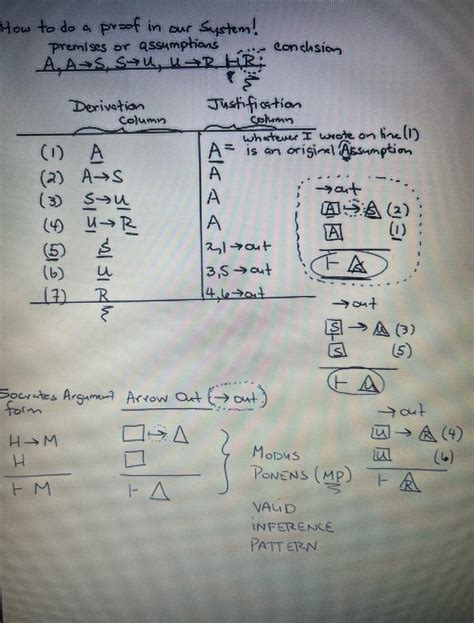 How to do a proof in our System!
premises or assumptions
conclsion
A, A→S, S→U, U→R ⊢ R
Derivation column
Justification column
(1) A A = whatever I wrote on line (1) is an original Assumption
(2) A→S A
(3) S→U A
(4) U→R A
(5) S 2,1→out
(6) U 3,5→out
(7) R 4,6→out
→out
A → S (2)
A (1)
⊢ S
→out
S → U (3)
S (5)
⊢ U
→out
U → R (4)
U (6)
⊢ R
Socrates Argument form
H→M
H
⊢ M
Arrow Out (→out)
□→△
□
⊢ △
MODUS
PONENS (MP)
VALID
INFERENCE
PATTERN